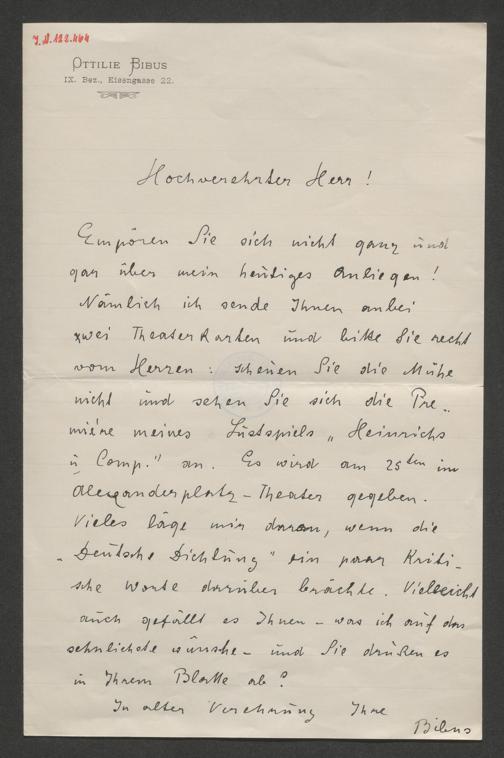 I.N.122.464
OTTILIE BIBUS
IX. Bez., Eisengasse 22.
Hochverehrter Herr!
Empören Sie sich nicht ganz und
gar über mein heutiges Anliegen!
Nämlich ich sende Ihnen anbei
zwei Theaterkarten und bitte Sie recht
vom Herzen: scheuen Sie die Mühe
nicht und sehen Sie sich die Pre„
mière meines Lustspiels „Heinrichs
u Comp." an. Es wird am 25ten im
Alexanderplatz-Theater gegeben.
Vieles läge mir daran, wenn die
„Deutsche Dichtung" ein paar Kriti-
sche Worte darüber brächte. Vielleicht
auch gefällt es Ihnen – was ich auf das
sehnlichste wünsche – und Sie druken es
in Ihrem Blatte ab?
In alter Verehrung Ihre
Bibus